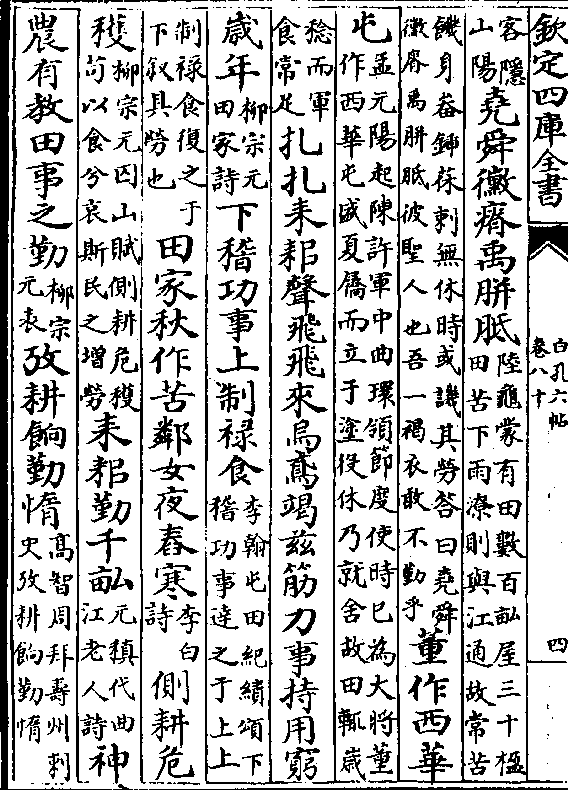 欽定四庫全書
白孔六帖
卷八十
四
客隱
山陽
堯舜黴瘠禹胼胝
陸龜蒙有田數百畝屋三十楹
田苦下雨潦則與江通故常苦
饑身畚鍤茠刺無休時或譏其勞答曰堯舜
黴瘠禹胼胝彼聖人也吾一褐衣敢不勤乎
董作西華
屯
孟元陽起陳許軍中曲環領節度使時已為大將董
作西華屯盛夏屩而立于塗役休乃就舍故田輒歲
稔而軍
食常足
扎扎耒耜聲飛飛來烏鳶竭茲筋力事持用窮
歲年
柳宗元
田家詩
下稽功事上制祿食
李翰屯田紀績頌下
稽功事達之于上上
制祿食復之于
下叙其勞也
田家秋作苦鄰女夜舂寒
李白
詩
側耕危
穫
柳宗元囚山賦側耕危穫
苟以食兮哀斯民之增勞
耒耜勤千畝
元稹代曲
江老人詩
神
農有教田事之勤
柳宗
元表
攷耕餉勤惰
高智周拜壽州刺
史攷耕餉勤惰